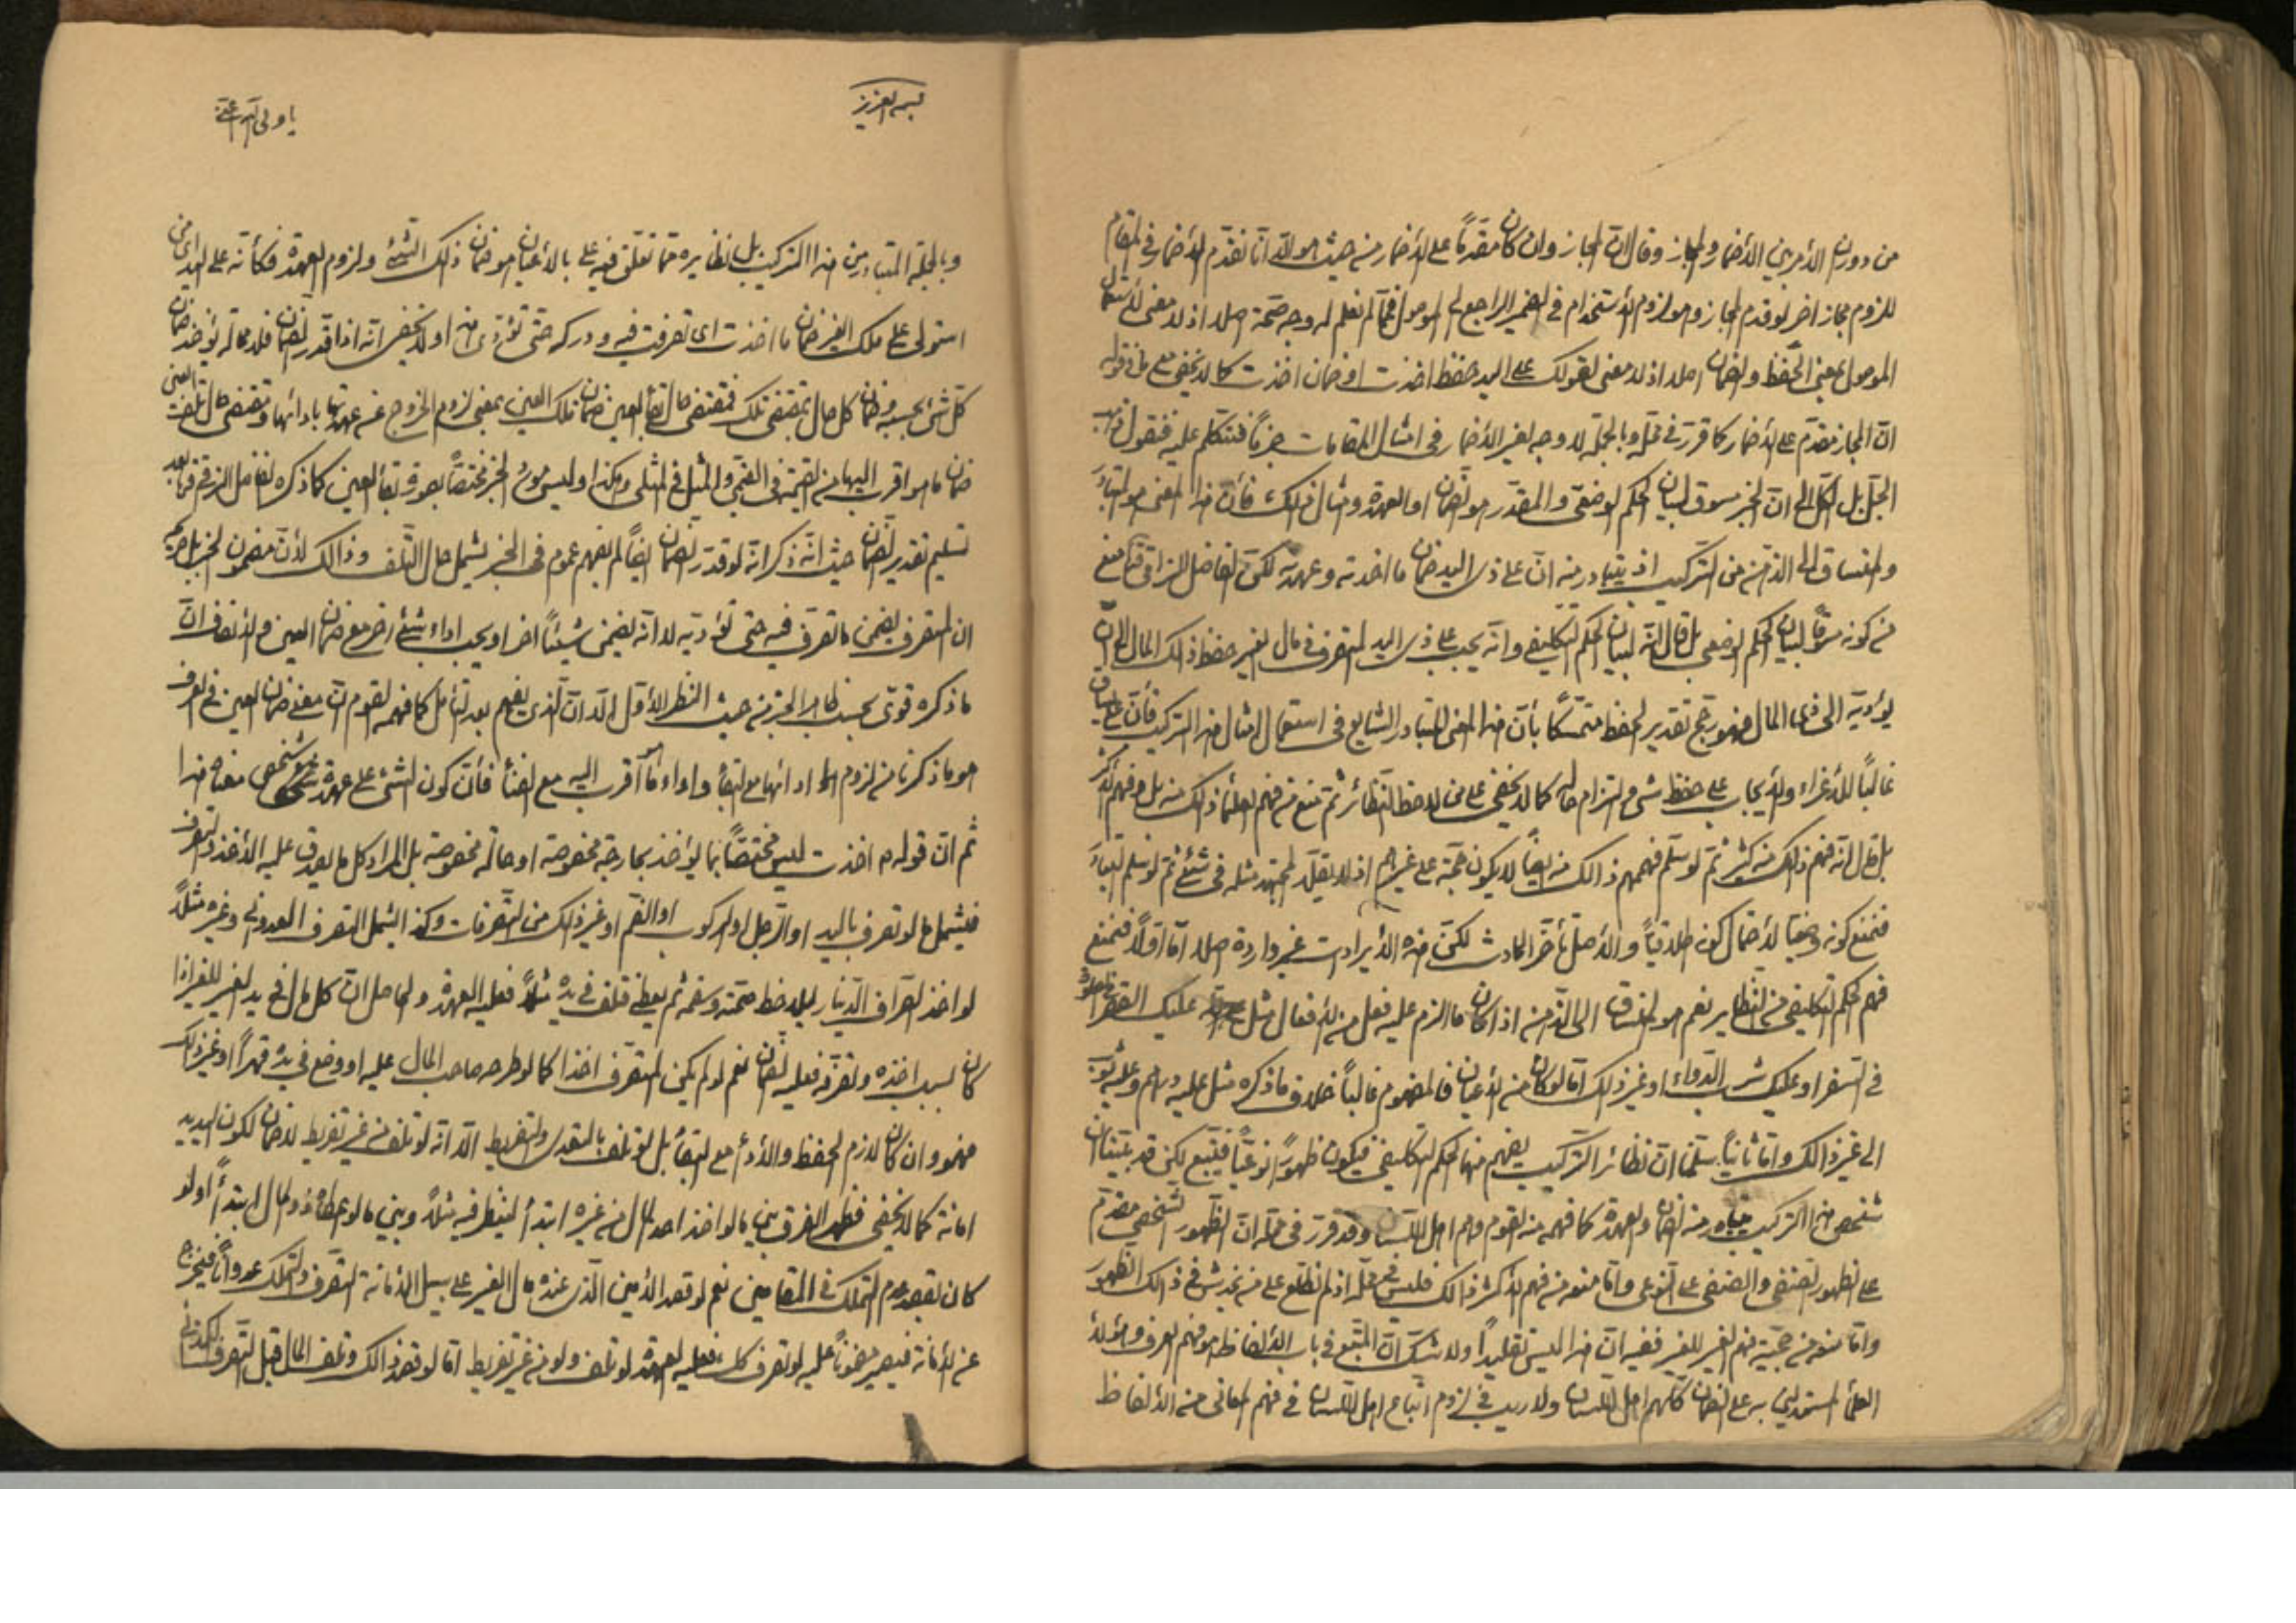 من دوران الأمر بين الأضمار والمجاز وقال انّ المجاز وان كان مقدماً على الأضمار من حيث هو الّا انّا نقدّم الأضمار في المقام
للزوم مجاز اخر لو قدم المجاز وهو لزوم الأستخدام في الضمير الراجع الى الموصول فممّا لم نعلم له وجه صحّة اصلا اذ لا معنى لأستعمال
الموصول بمعنى الحفظ والضمان اصلا اذ لا معنى لقولك على اليد حفظ اخذت او ضمان اخذت كما لا يخفى مع ما في قوله
انّ المجاز مقدّم على الأضمار كما قرر في محلّه وبالجملة لا وجه لغير الأضمار في امثال المقامات جزماً فنتكلم عليه فنقول ذهب
الجلّ بل الكلّ الى انّ الخبر مسوق لبيان الحكم الوضعيّ والمقدّر هو الضمان او العهدة ومثال ذلك فأنّ هذا المعنى هو المتبادر
والمنساق الى الذهن من التركيب اذ يتبادر منه انّ على ذى اليد ضمان ما اخذته وعهدته لكنّ الفاضل النراقي قدّه منع
من كونه مسوقاً لبيان الحكم الوضعي بل قال انّه لبيان الحكم التكليفي وانّه يجب على ذى اليد المتصرف في مال الغير حفظ ذلك المال الى ان
يؤديه الى ذى المال فهو رجّح تقدير الحفظ متمسّكاً بأنّ هذا المعنى المتبادر الشايع في استعمال امثال هذا التركيب فأنّ على يساق
غالباً للأغراء والأيجاب على حفظ شى والتزام حاله كما لا يخفى على من لاحظ النظائر ثم منع من فهم العلماء ذلك منه بل فهم الأكثر
بل قال انّه فهم ذلك منه كثير ثمّ لو سلّم فهمهم ذالك منه ايضاً لا يكون حجّة على غيرهم اذ لا يقلّد المجتهد مثله في شئ ثمّ لو سلم التبادر
فنمنع كونه وضعيّا لأحتمال كونه اطلاقيّاً والأصل تأخّر الحادث لكنّ هذه الأيرادات غير واردة اصلا امّا اوّلاً فنمنع
فهم الحكم التكليفي من النظاير نعم هو المنساق الى الذّهن اذا كان ما الزم عليه فعل من الأفعال مثل عليك القصر
في السفر او عليك شرب الدّواء او غير ذلك امّا لو كان من الأعيان فالمفهوم غالباً خلاف ما ذكره مثل عليه درهم وعليه ثوب
الى غير ذالك وامّا ثانياً سلّمنا انّ نظائر التركيب يفهم منها الحكم التكليفي فيكون ظهوراً نوعيّاً فيتّبع لكن قد بيّنا انّ
شخص هذا التركيب يتبادر منه الضمان والعهدة كما فهمه منه القوم وهم اهل اللّسان وقد قرر في محلّه انّ الظهور الشخصي مقدّم
على الظهور الصنفي والصنفي على النوعى وامّا منعه من فهم الأكثر ذالك فليس في محلّه اذ لم نطلع على من يخدش في ذالك الظهور
وامّا منعه من حجيّة فهم الغير للغير ففيه انّ هذا ليس تقليداً ولا شك انّ المتّبع في باب الألفاظ هو فهم العرف وهؤلاء
العلماء المستدلين به على الضمان كلّهم اهل اللّسان ولا ريب في لزوم اتّباع اهل اللّسان في فهم المعانى من الألفاظ
بسمه العزيز
وبالجملة المتبادر من هذا التركيب بل نظايره ممّا تعلّق فيه على بالأعيان هو ضمان ذلك الشئ ولزوم العهدة فكأنّه على اليد اى من
استولى على ملك الغير ضمان ما اخذت اى تصرفت فيه ودركه حتّى تؤدّى هذا ولا يخفى انّه اذا قدّر الضمان فلا محالة يؤخذ ضمان
كلّ شئ بحسبه وضمان كل حال بمقتضى تلك فمقتضى حال بقاء العين ضمان تلك العين بمعنى لزوم الخروج عن عهدتها بادائها ومقتضى حال تلف العين
ضمان ما هو اقرب اليها من القيمة في القيمى والمثل في المثلى وهكذا وليس مورد الخبر مختصّاً بصورة بقاء العين كما ذكره الفاضل النراقي قدّه بعد
تسليم تقدير الضمان حيث انّه ذكر انّه لو قدّر الضمان ايضاً لم يفهم عموم في الخبر يشمل حال التّلف وذالك لأنّ مضمون الخبر بل صريحه
ان المتصرف يضمن ما تصرف فيه حتى تؤديه لا انّه يضمن شيئاً اخر او يجب اداء شئ اخر مع ضمان العين والأنصاف انّ
ما ذكره قوىّ بحسب ظاهر الخبر من حيث النظر الأوّل الّا انّ الّذى يفهم بعد التأمل كما فهمه القوم انّ معنى ضمان العين في العرف
هو ما ذكرنا من لزوم ادائها مع البقاء واداء ما هو اقرب اليه مع الفناء فأنّ كون الشئ على عهدة شخص معناه هذا
ثم انّ قوله م اخذت ليس مختصّاً بما يؤخذ بجارحة مخصوصة او حالة مخصوصة بل المراد كل ما يصدق عليه الأخذ والتصرف
فيشمل ما لو تصرف باليد او الرّجل او الركوب او الفم او غير ذلك من التصرفات وكذا يشمل التصرف العدوانى وغيره مثلاً
لو اخذ الصراف الدّينار ليلاحظ صحّته وسقمه ثم يعطى فتلف في يده مثلاً فعليه العهدة والحاصل انّ كل مال في يد الغير للغير اذا
كان بسبب اخذه وتصرّفه فعليه الضمان نعم لو لم يكن المتصرف اخذا كما لو طرحه صاحب المال عليه او وضع في يده قهراً او غير ذلك
فهو وان كان لازم الحفظ والأداء مع البقاء بل لو تلف بالتعدى والتفريط الّا انّه لو تلف من غير تفريط لا ضمان لكون اليد يد
امانة كما لا يخفى فظهر الفرق بين ما لو اخذ احد المال من غيره ابتداءً لينظر فيه مثلاً وبين ما لو عطاه ذو المال ابتداءً او لو
كان لقصد عدم التملك في المقامين نعم لو قصد الأمين الّذى عنده مال الغير على سبيل الأمانة التصرف والتملك عدواناً فيخرج
عن الأمانة فيصير مضموناً عليه لو تصرف كل فعليه العهدة لو تلف ولو من غير تفريط امّا لو قصد ذالك وتلف المال قبل التصرف